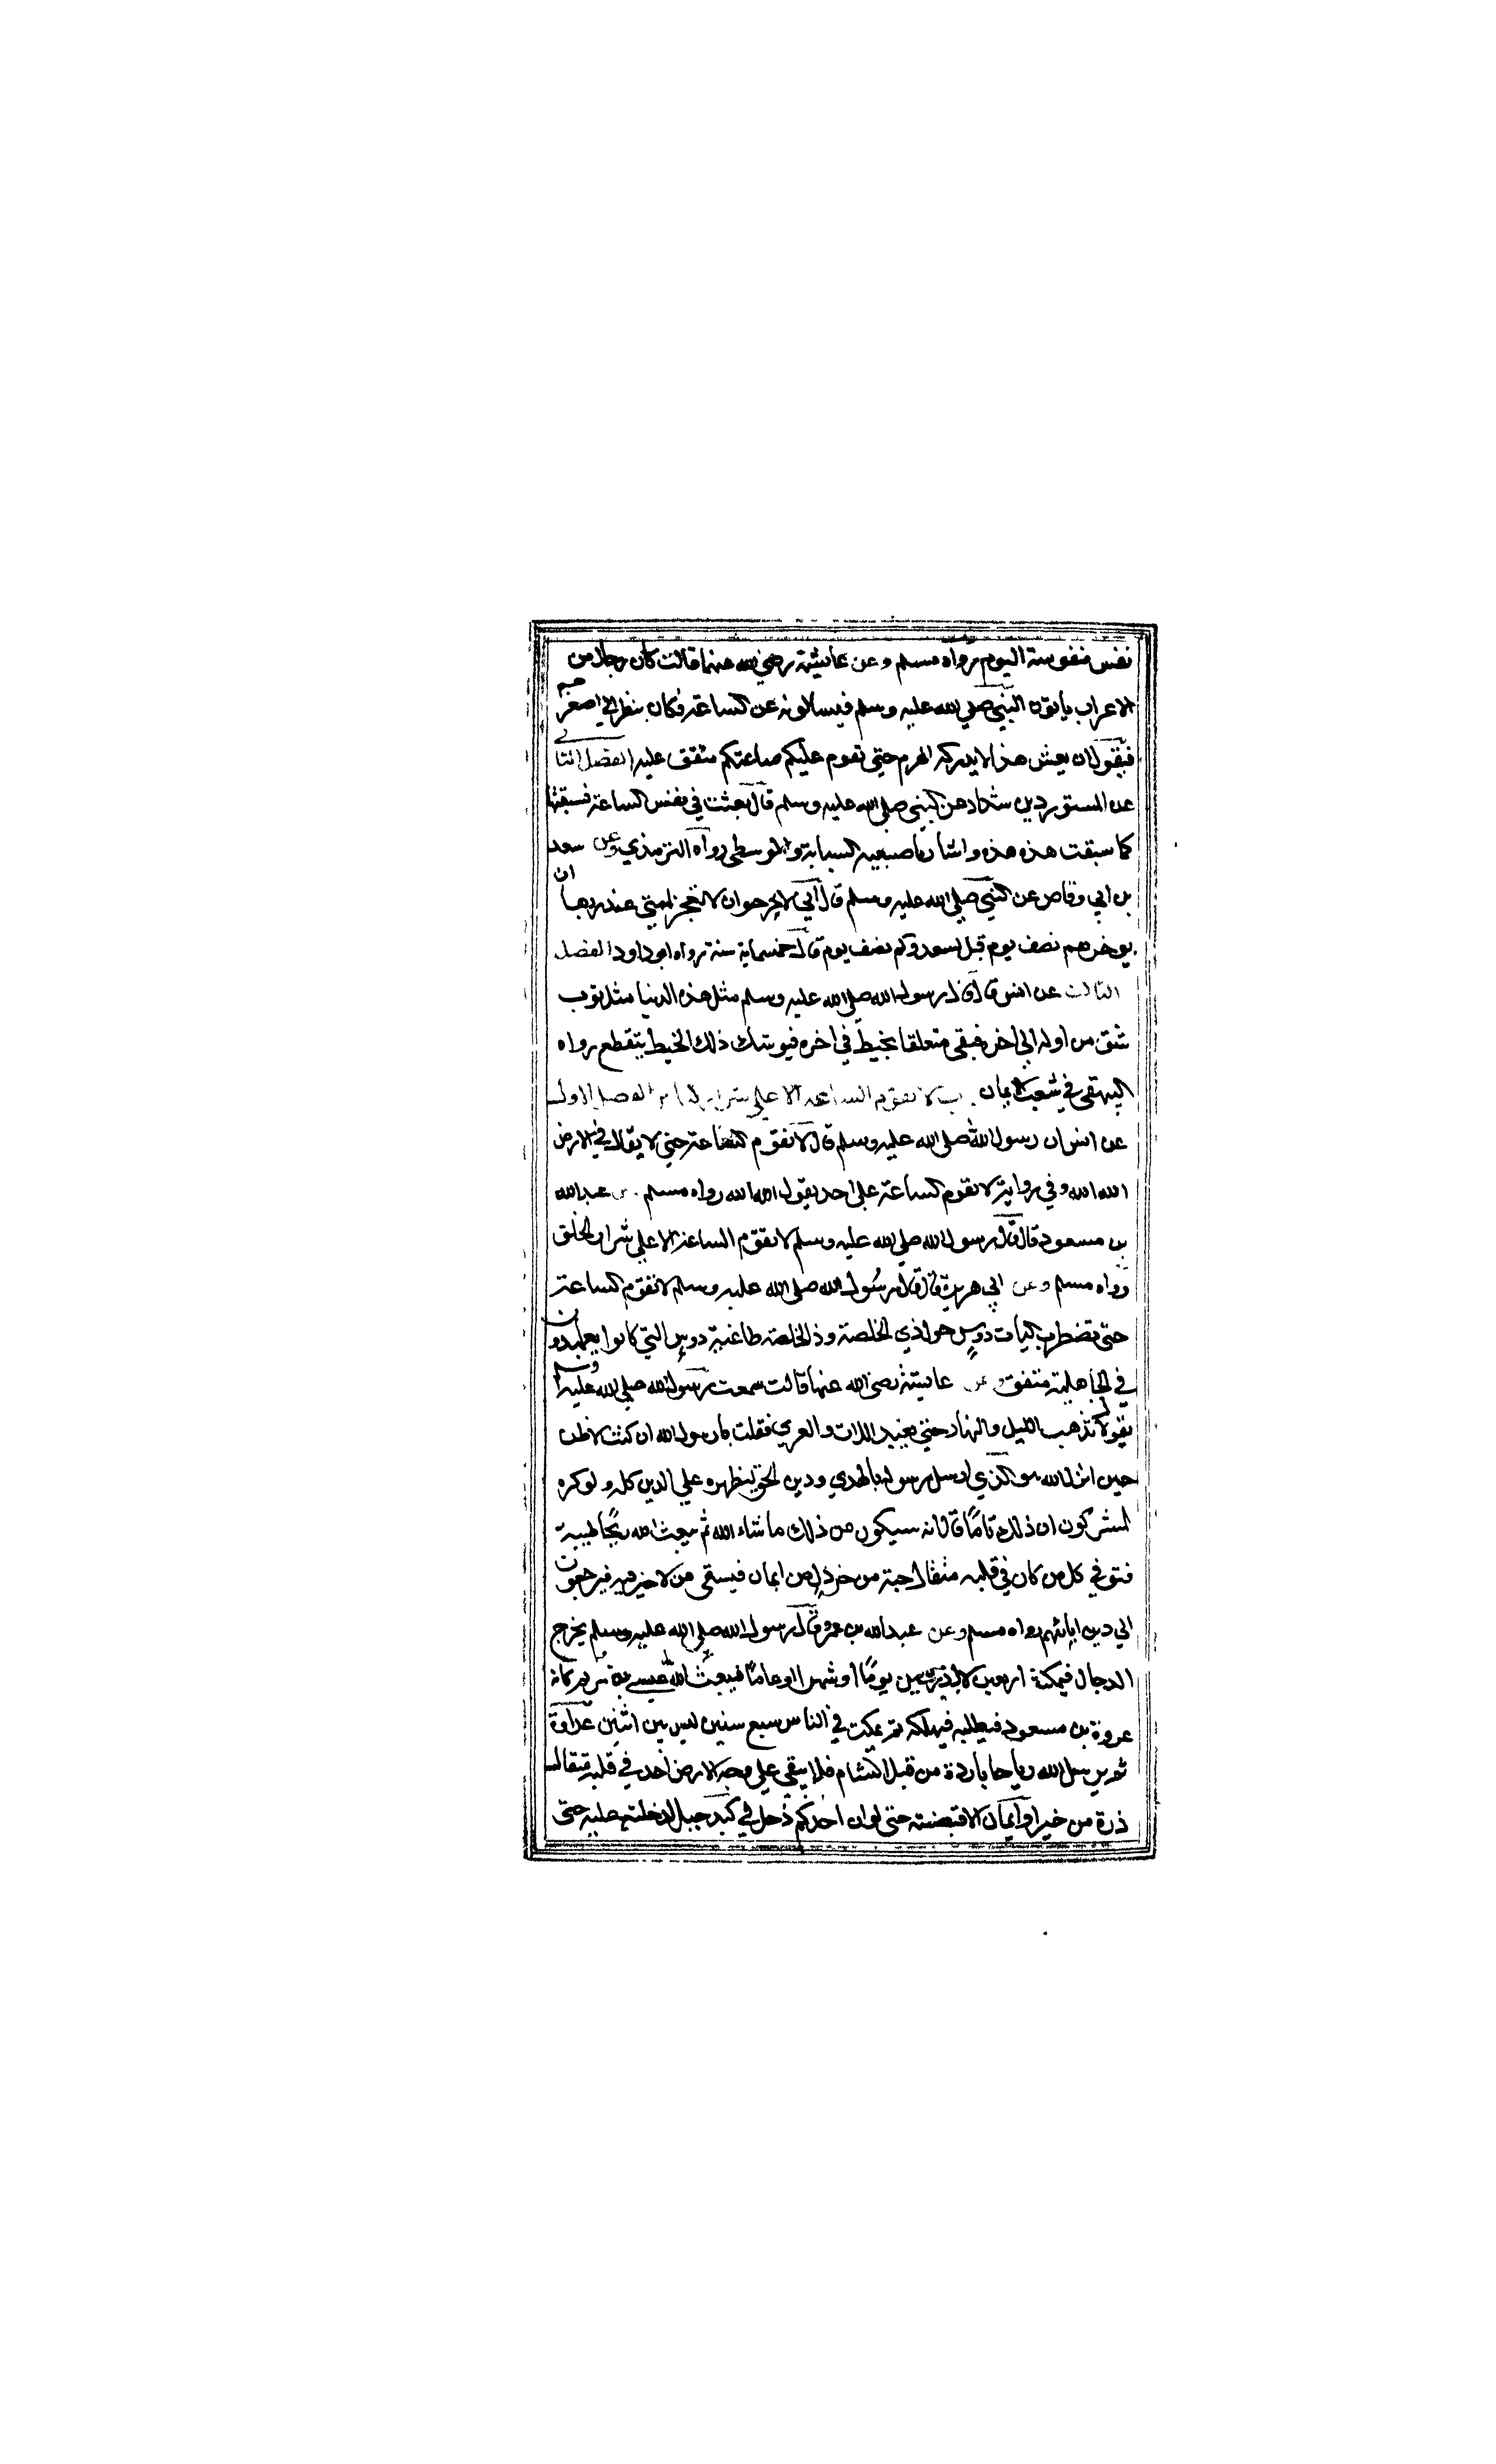 نفس منفوسة اليوم رواه مسلم وعن عايشة رضي الله عنها قالت كان رجال من
الاعراب يأتون النبي صلي الله عليه وسلم فيسالونه عن الساعة فكان ينظر الي اصغرهم
فيقول ان يعش هذا لا يدركه الهرم حتي تقوم عليكم ساعتكم متفق عليه الفصل الثاني
عن المستورد بن شداد عن النبي صلي الله عليه وسلم قال بعثت في نفس الساعة فسبقتها
كما سبقت هذه هذه واشار باصبعيه السبابة والوسطي رواه الترمذي وعن سعد
بن ابي وقاص عن النبي صلي الله عليه وسلم قال اني لارجو ان لا تعجز امتي عند ربها ان
يوخرهم نصف يوم قيل لسعد وكم نصف يوم قال خمسماية سنة رواه ابو داود الفصل
الثالث عن انس قال قال رسول الله صلي الله عليه وسلم مثل هذه الدنيا مثل ثوب
شق من اوله الي اخره فبقي متعلقا بخيط في اخره فيوشك ذلك الخيط ينقطع رواه
البيهقي في شعب الايمان باب لا تقوم الساعة الا علي شرار الناس الفصل الاول
عن انس ان رسول الله صلي الله عليه وسلم قال لا تقوم الساعة حتي لا يقال في الارض
الله الله وفي رواية لا تقوم الساعة علي احد يقول الله الله رواه مسلم وعن عبدالله
بن مسعود قال قال رسول الله صلي الله عليه وسلم لا تقوم الساعة الا علي شرار الخلق
رواه مسلم وعن ابي هريرة قال قال رسول الله صلي الله عليه وسلم لا تقوم الساعة
حتي تضطرب اليات دوس حول ذي الخلصة وذو الخلصة طاغية دوس التي كانوا يعبدون
في الجاهلية متفق وعن عايشة رضي الله عنها قالت سمعت رسول الله صلي الله عليه وسلم
يقول لا تذهب الليل والنهار حتي يعبد اللات والعزي فقلت يا رسول الله ان كنت لاظن
حين انزل الله هو الذي ارسل رسوله بالهدي ودين الحق ليظهره علي الدين كله ولو كره
المشركون ان ذلك تامًا قال انه سيكون من ذلك ما شاء الله ثم يبعث الله ريحًا طيبة
فتوفي كل من كان في قلبه مثقال حبة من خردل من ايمان فيبقي من لا خير فيه فيرجعون
الي دين ابائهم رواه مسلم وعن عبدالله بن عمرو قال رسول الله صلي الله عليه وسلم يخرج
الدجال فيمكث اربعين لا ادري اربعين يومًا او شهرا او عامًا فيبعث الله عيسي بن مريم كانه
عروة بن مسعود فيطلبه فيهلكه ثم يمكث في الناس سبع سنين ليس بين اثنين عداوة
ثم يرسل الله ريحا باردة من قبل الشام فلا يبقي علي وجه الارض احد في قلبه مثقال
ذرة من خير او ايمان الا قبضته حتي لو ان احدكم دخل في كبد جبل لدخلته عليه حتي